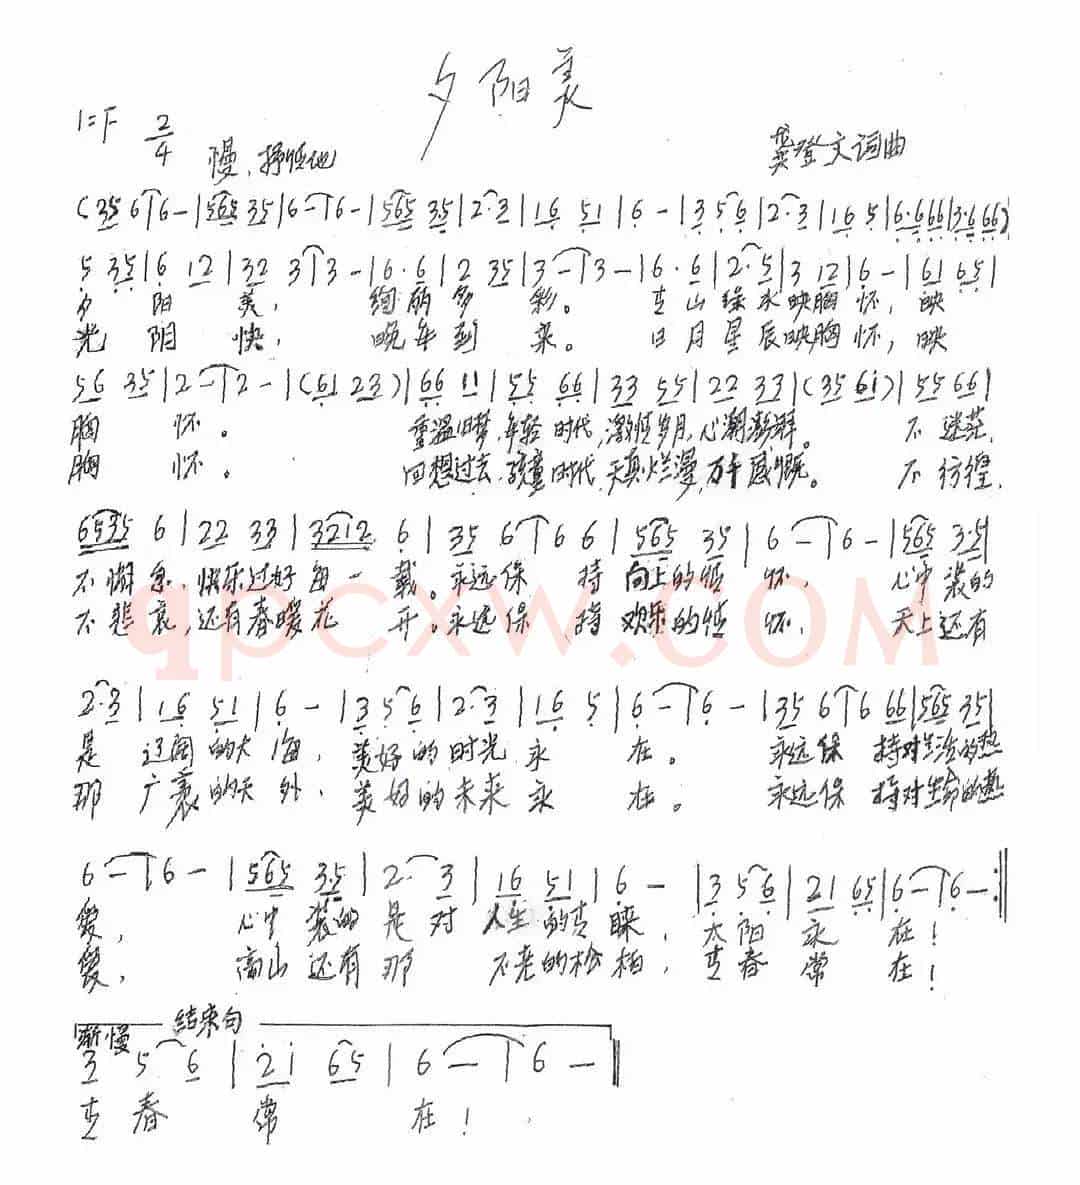 夕阳美
1=F 2/4
慢、抒情地
龚登文词曲
(35 6 | 6 - | 565 35 | 6 - | 6 - | 565 35 | 2·3 | 16 51 | 6 - | 3 5 6 | 2·3 | 16 5 | 6·6 66 | 3·6 66)
5 35 | 6 12 | 32 3 | 3 - | 6·6 | 2 35 | 3 - | 3 - | 6·6 | 2·5 | 3 12 | 6 - | 61 65 |
夕 阳 美, 绚丽多 彩。 青山绿水映胸怀, 映
光 阴 快, 晚年到 来。 日月星辰映胸怀, 映
56 35 | 2 - | 2 - | (61 23) | 66 11 | 55 66 | 33 55 | 22 33 | (35 6i) | 55 66 |
胸 怀。 重温旧梦,年轻时代,激情岁月,心潮澎湃。 不迷茫,
胸 怀。 回想过去,孩童时代,天真烂漫,万千感慨。 不彷徨,
6535 6 | 22 33 | 3212 6 | 35 6 | 6 6 | 565 35 | 6 - | 6 - | 565 35 |
不懈怠,快乐过好每一载。永远保 持向上的情怀, 心中装的
不悲哀,还有春暖花 开。永远保 持欢乐的情怀, 天上还有
qpcxw.com
2·3 | 16 51 | 6 - | 3 5 6 | 2·3 | 16 5 | 6 - | 6 - | 35 6 | 6 66 | 565 35 |
是 辽阔的大海, 美好的时光永 在。 永远保 持对生活的热
那 广袤的天外, 美好的未来永 在。 永远保 持对生命的热
6 - | 6 - | 565 3·5 | 2· 3 | 16 51 | 6 - | 3 5 6 | 21 65 | 6 - | 6 - :||
爱, 心中装的是对人生的青睐, 太阳永 在!
爱, 高山还有那 不老的松柏, 青春常 在!
渐慢 结束句
3 5 6 | 2i 65 | 6 - | 6 - ||
青春 常 在!